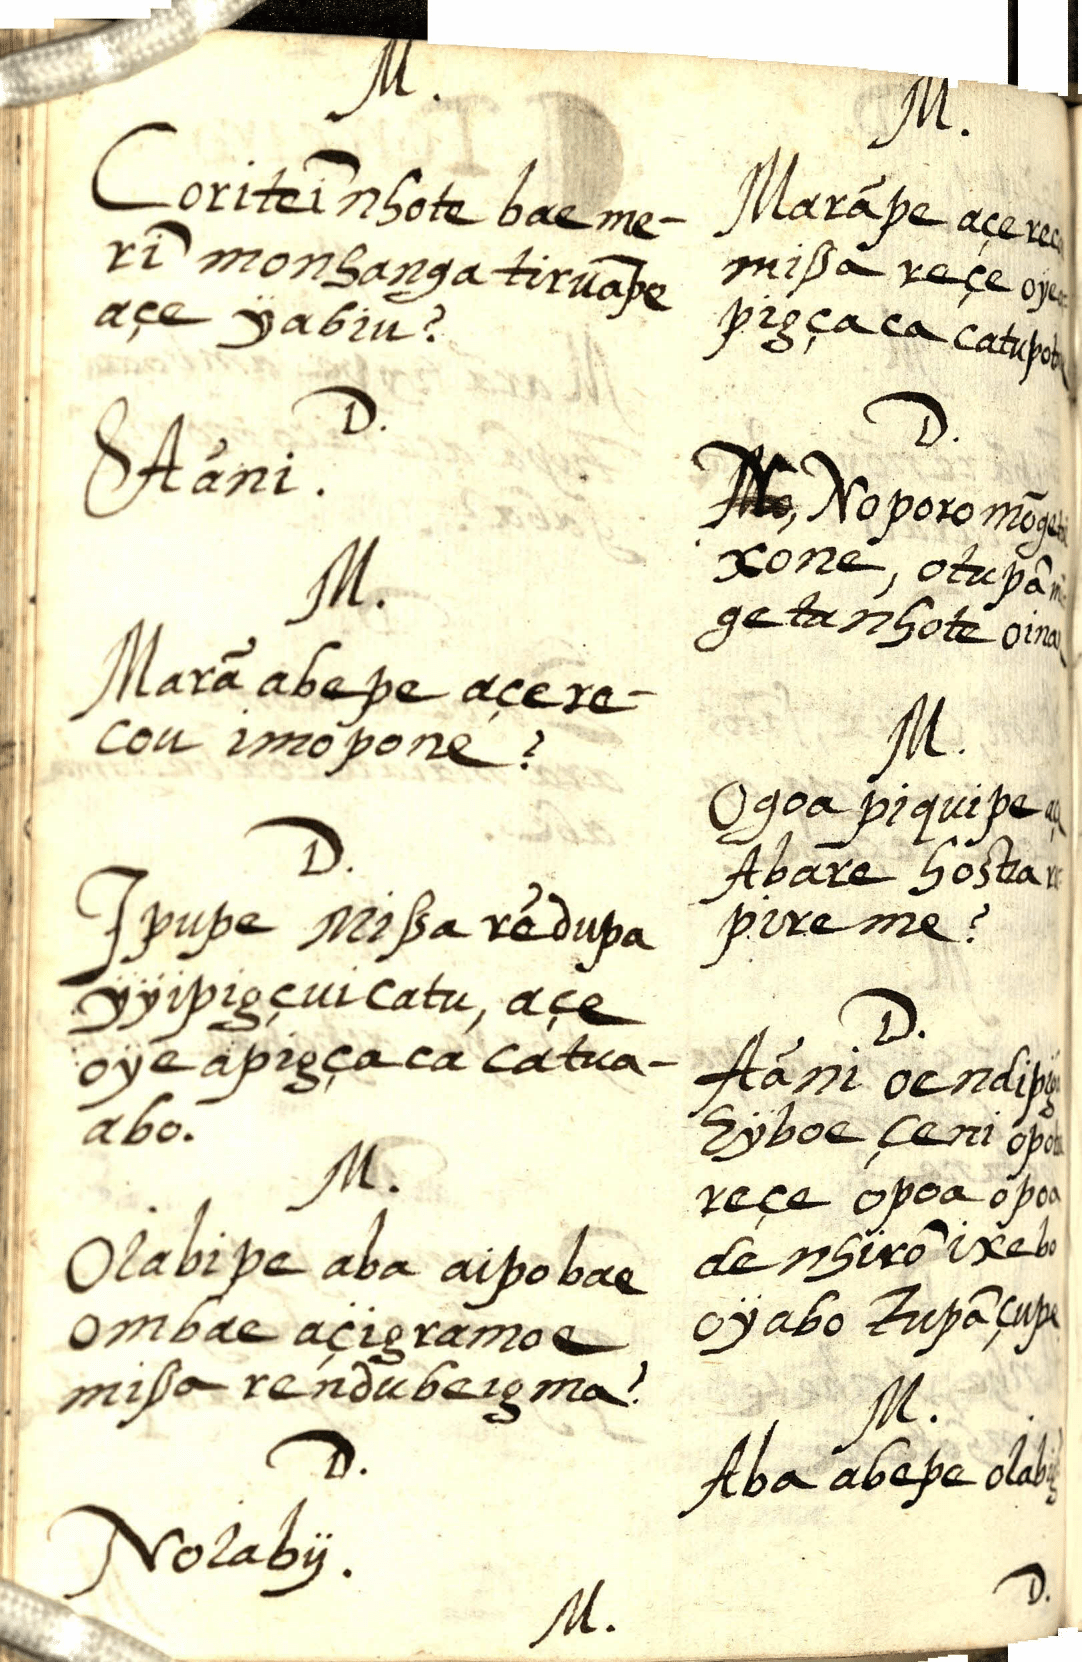 M.
Coriteĩ nhote bae me-
rĩ monhanga tiruãpe
açe ÿabiu?
D.
Aáni.
M.
Marã abepe açere-
cou imopone?
D.
Ipupe Missa rẽdupa
ÿÿipigçui catu, açe
oÿe apigçaca catua-
abo.
M.
Olabipe aba aipobae
ombae açÿigramoe
missa rendubeigma?
D.
Nolabÿ.
M.
M.
Marãpe açe
missa reçe
pigçaca
D.
Noporo
xone, otupã
getanhote
M.
Ogoa piquipe
Abare hostia
pireme?
D.
Aáni
hÿboe çeni
reçe opoa
de nhirõ ixebo
oÿabo Tupã çupe
M.
Aba abepe
D.